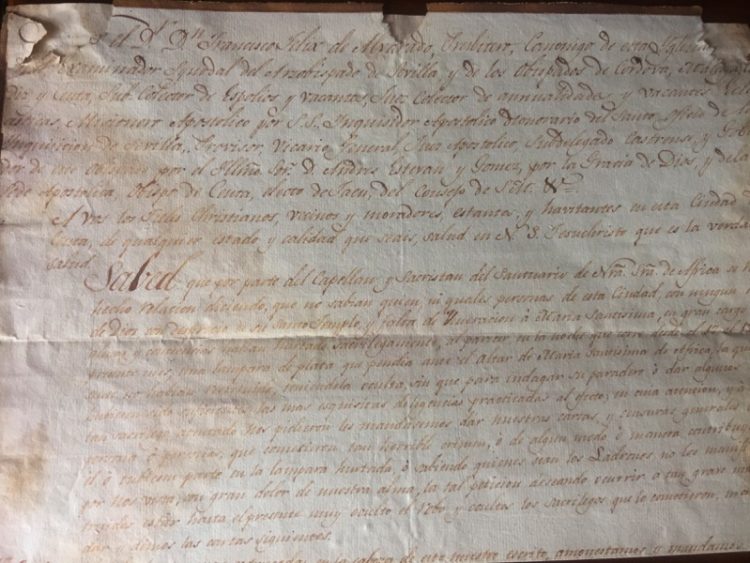 el D.r D.n Francisco Felix de Alvarado, Presbitero, Canonigo de esta Iglesia
Examinador Synodal del Arzobispado de Sevilla, y de los Obispados de Cordova,
y Ceuta, Sub-Colector de Espolios y vacantes, Juez Colector de annualidades y vacantes
Misionero Apostolico por S.S. Inquisidor Apostolico honorario del Santo Oficio de
Inquisicion de Sevilla, Provisor, Vicario General, Juez Apostolico, Subdelegado Castrense, y
de este Obispado por el Illmo. Sr. D. Andres Estevan y Gomez, por la Gracia de Dios, y de la
Sede Apostolica, Obispo de Ceuta, electo de Jaen, del Consejo de S.M. &.a
A vos los Fieles Christianos, vecinos y moradores, estantes, y havitantes en esta Ciudad
Ceuta, de qualquier estado y calidad que seais, salud en N. S. Jesuchristo que es la verda
salud.
Sabed que por parte del Capellan, y Sacristan del Santuario de Nrã. Srã. de Africa se
hecho relacion diciendo, que no sabian quien, ni quales personas de esta Ciudad, con ningun
de Dios su Santo Templo, y falta de veneracion á Maria Santisima, en gran cargo
havian hurtado sacrilegamente, al parecer en la noche que
presente mes, una lampara de plata que pendia ante el Altar de Maria Santisima de Africa, la q
teniendola oculta, sin que para indagar su paradero ó dar algunos
las mas esquisitas diligencias practicadas al efecto; en esta atencion, y
tan sacrilego atentado nos pidieron les mandasemos dar nuestras cartas, y censuras generales
persona ó personas, que cometieron tan horrible crimen, ó de algun modo ó manera contribu
ó tubiesen parte en la lampara hurtada, ó sabiendo quienes sean los Ladrones no les mani
por Nos visto, con gran dolor de nuestra alma, la tal peticion deseando ocurrir a tan grave
estar hasta el presente muy oculto el robo y ocultos los sacrilegos que lo cometieron,
dar y dimos las cartas siguientes.
en la cabeza de este nuestro escrito, amonestamos y mandamos